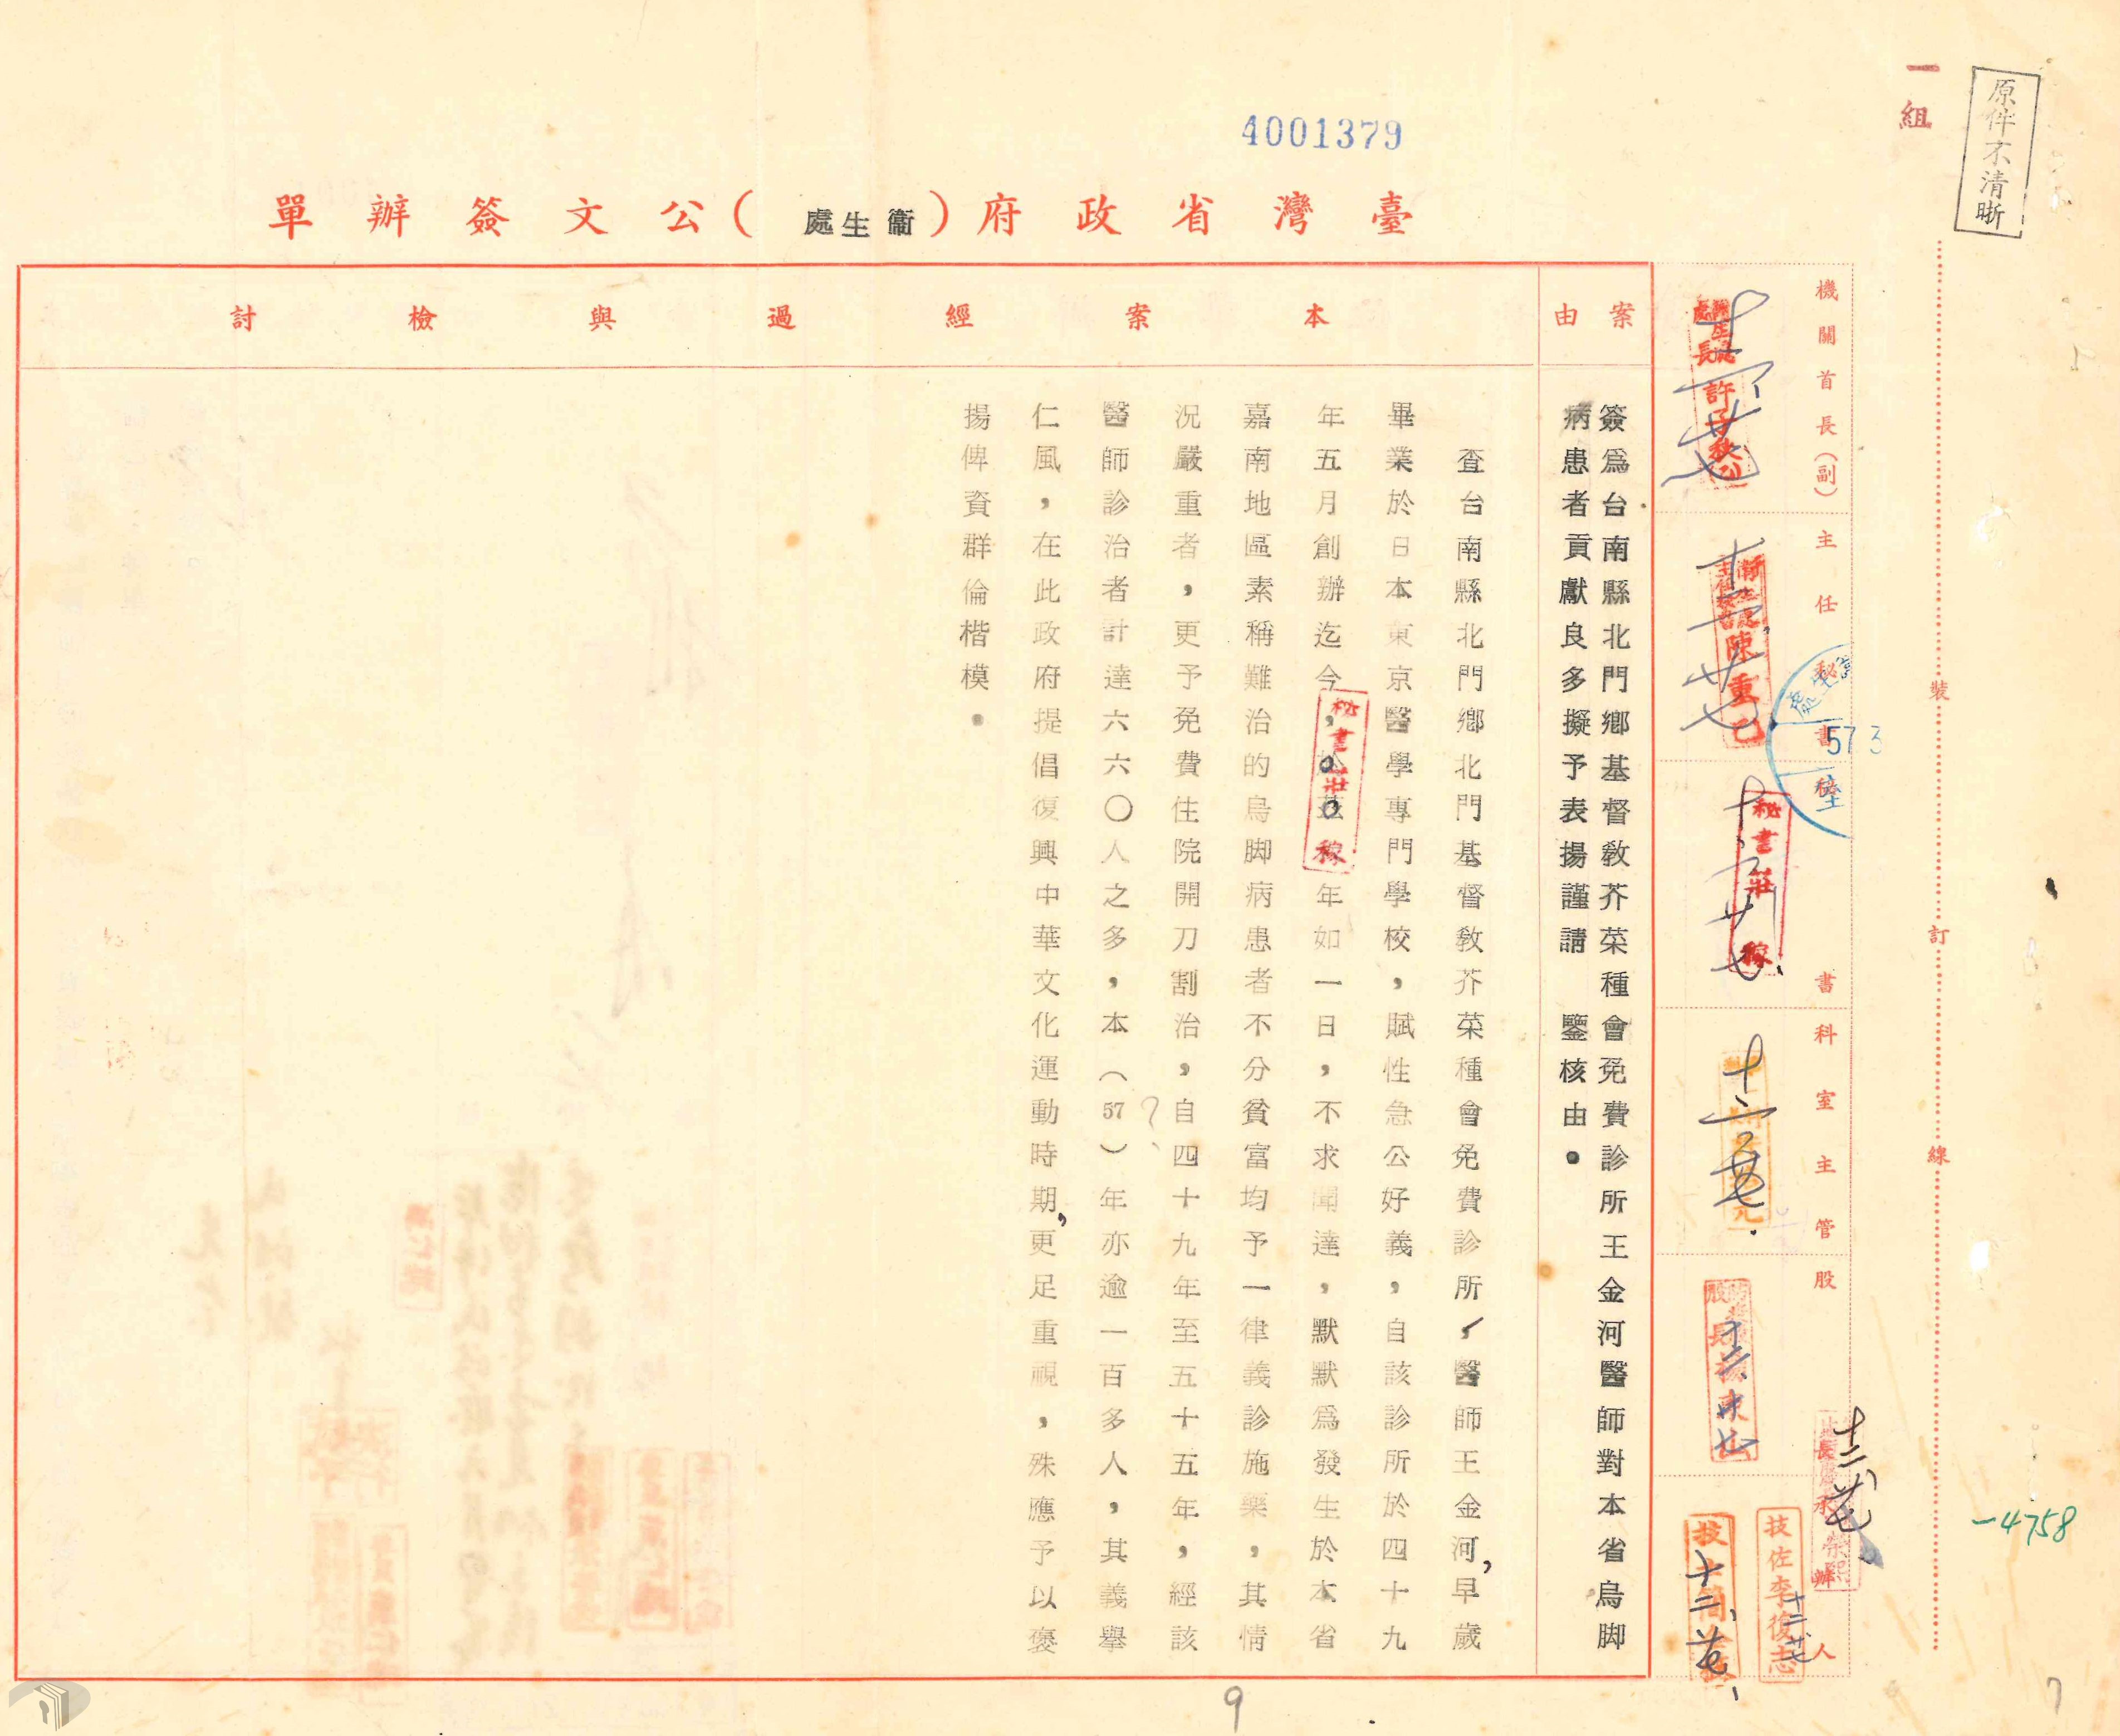 原件不清晰
一組
4001379
臺灣省政府（衞生處）公文簽辦單
機關首長（副）
主任秘書
秘書
科室主管
股長
承辦人
許子秋
陳重
秘書莊稼
技佐李復志
57 3
十二廿七
裝
訂
線
-4758
案由
簽爲台南縣北門鄉基督敎芥菜種會免費診所王金河醫師對本省烏脚
病患者貢獻良多擬予表揚謹請　鑒核由。
本案經過與檢討
查台南縣北門鄉北門基督敎芥菜種會免費診所，醫師王金河，早歲
畢業於日本東京醫學專門學校，賦性急公好義，自該診所於四十九
年五月創辦迄今，年如一日，不求聞達，默默爲發生於本省
秘書莊稼
嘉南地區素稱難治的烏脚病患者不分貧富均予一律義診施藥，其情
況嚴重者，更予免費住院開刀割治，自四十九年至五十五年，經該
醫師診治者計達六六〇人之多，本（57）年亦逾一百多人，其義舉
仁風，在此政府提倡復興中華文化運動時期，更足重視，殊應予以褒
揚俾資群倫楷模。
9
7